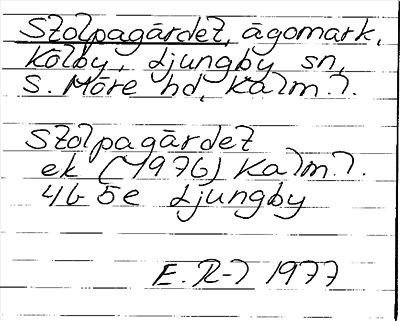 Stolpagärdet, ägomark,
Kölby, Ljungby sn,
S. Möre hd, Kalm.l.
Stolpagärdet
ek (1976) Kalm.l.
4G 5e Ljungby
E. R-l 1977